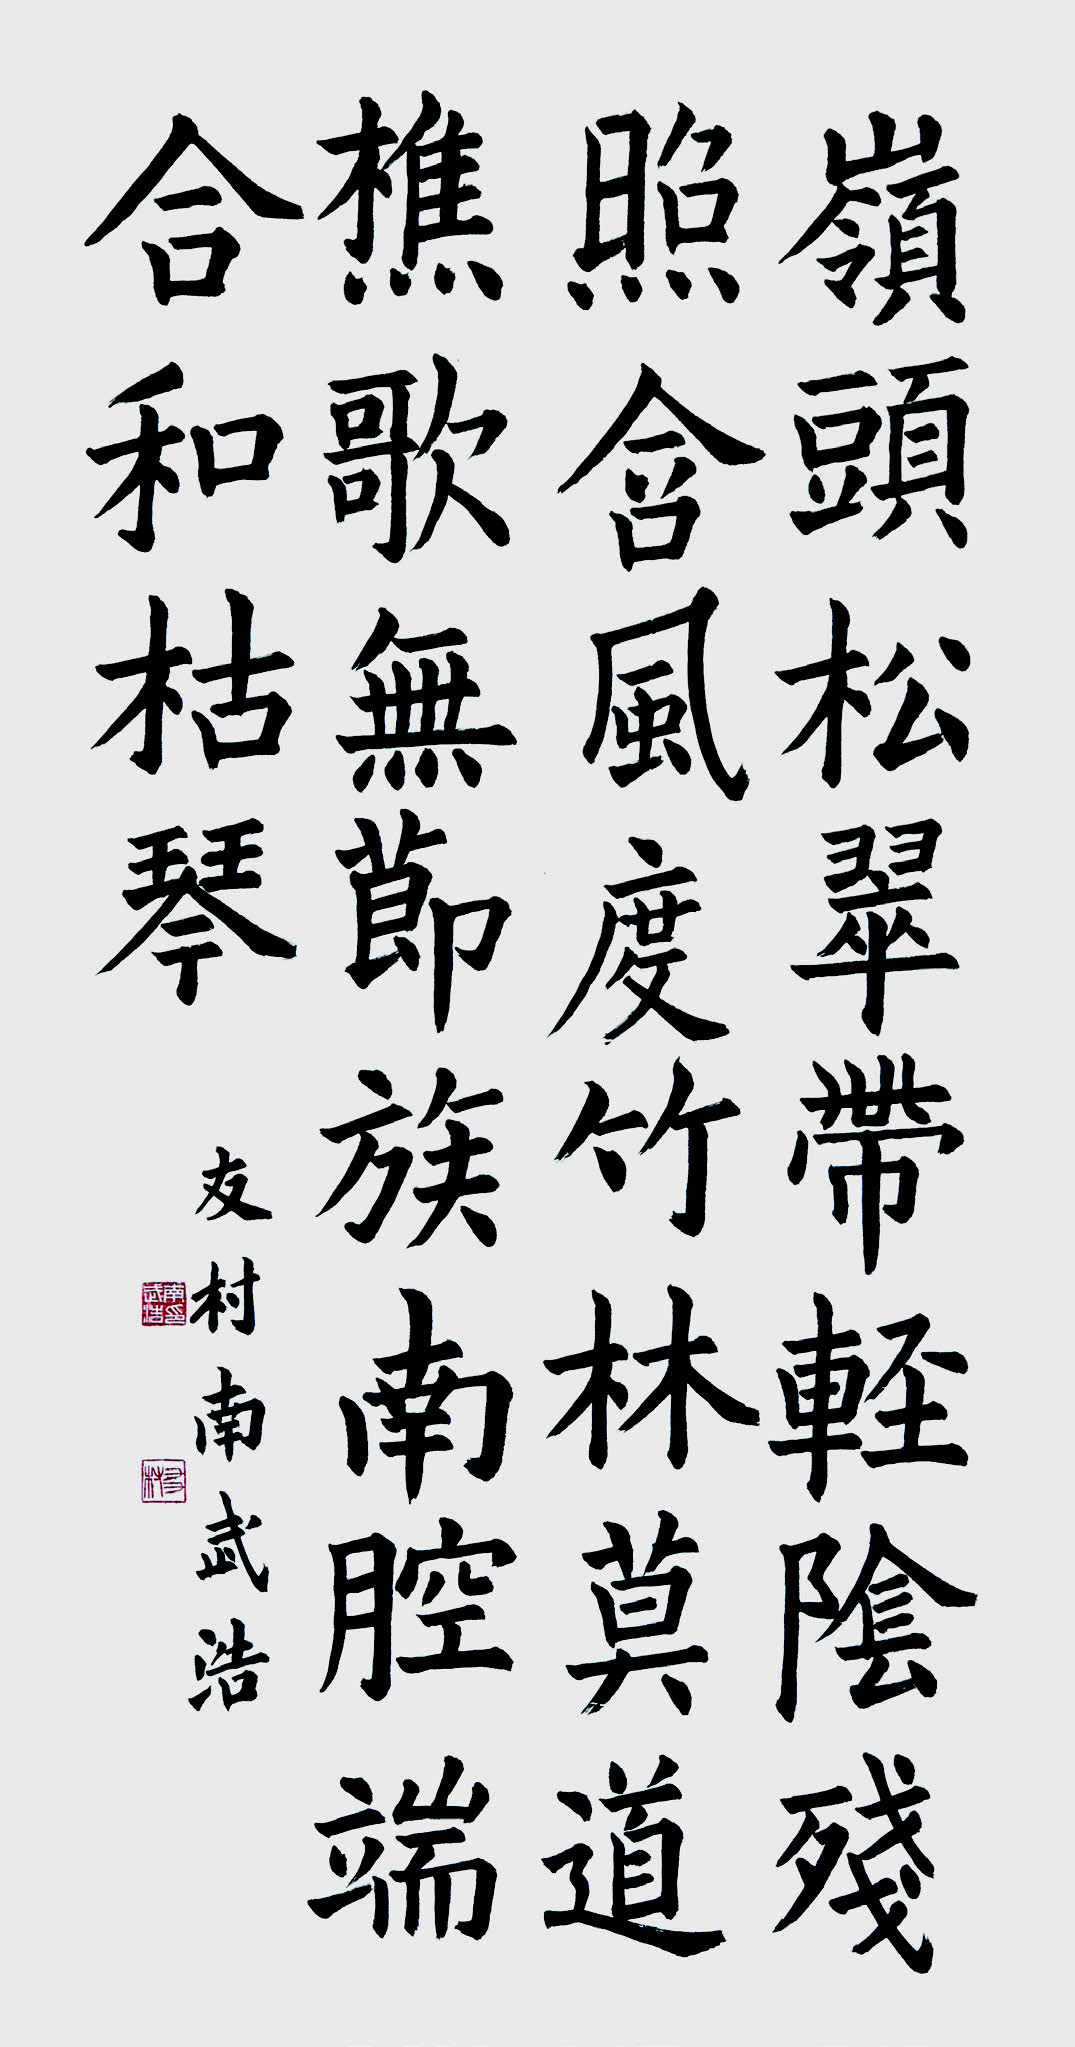 嶺頭松翠帶輕陰殘
照含風度竹林莫道
樵歌無節族南腔端
合和枯琴
友村南武浩
南印武浩
友村